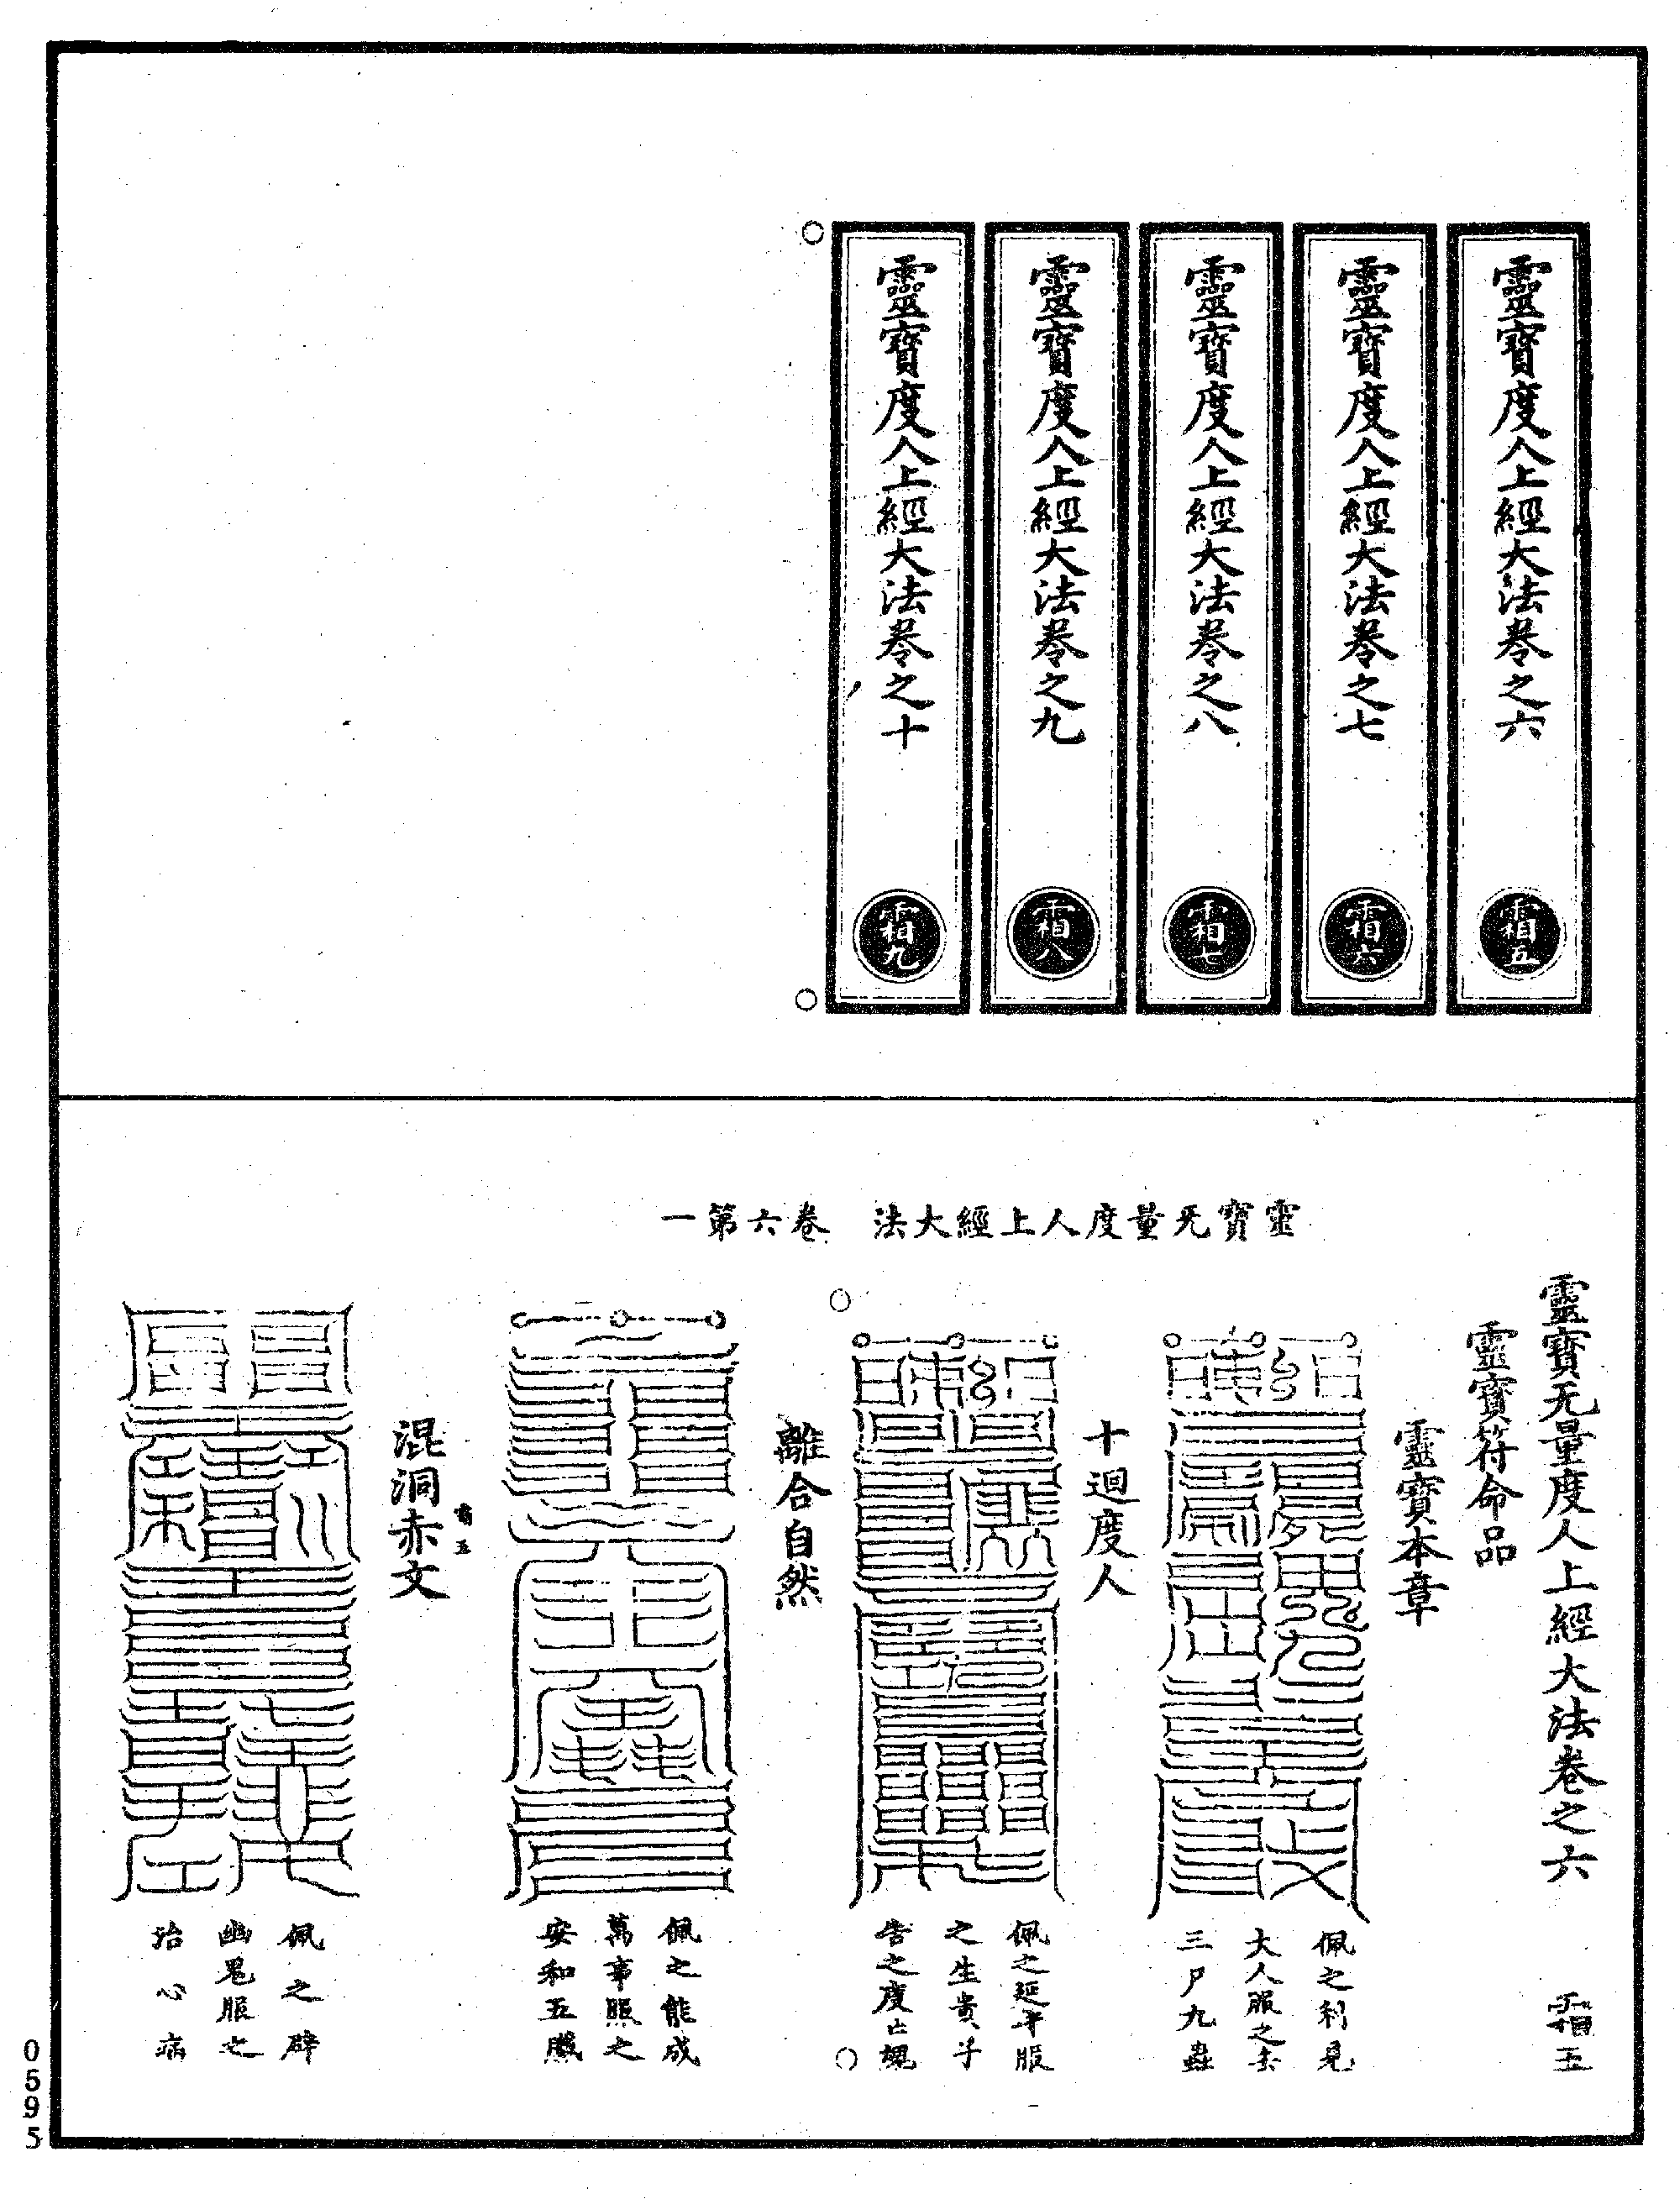 靈寶度人上經大法卷之六
霜五
靈寶度人上經大法卷之七
霜六
靈寶度人上經大法卷之八
霜七
靈寶度人上經大法卷之九
霜八
靈寶度人上經大法卷之十
霜九
靈寶无量度人上經大法　卷六第一
靈寶无量度人上經大法卷之六　霜五
靈寶符命品
靈寶本章
佩之利見
大人服之去
三尸九蟲
十迴度人
佩之延年服
之生貴子
告之度亡魂
離合自然
佩之能成
萬事服之
安和五臟
霜五
混洞赤文
佩之辟
幽鬼服之
治心病
0595